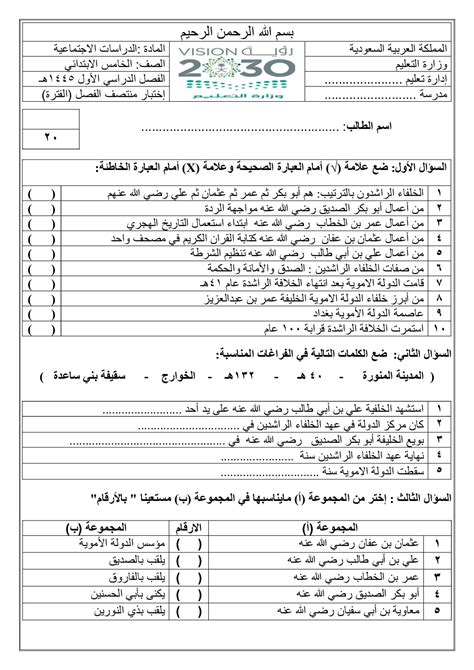 بسم الله الرحمن الرحيم
المملكة العربية السعودية
وزارة التعليم
إدارة تعليم .....................
مدرسة ........................
VISION رؤية
2030
وزارة التعليم
المادة :الدراسات الاجتماعية
الصف: الخامس الابتدائي
الفصل الدراسي الأول ١٤٤٥هـ
إختبار منتصف الفصل (الفترة)
اسم الطالب: ....................................................
٢٠
السؤال الأول: ضع علامة (√) أمام العبارة الصحيحة وعلامة (X) أمام العبارة الخاطئة:
١ الخلفاء الراشدون بالترتيب: هم أبو بكر ثم عمر ثم عثمان ثم علي رضي الله عنهم ( )
٢ من أعمال أبو بكر الصديق رضي الله عنه مواجهة الردة ( )
٣ من أعمال عمر بن الخطاب رضي الله عنه ابتداء استعمال التاريخ الهجري ( )
٤ من أعمال عثمان بن عفان رضي الله عنه كتابة القران الكريم في مصحف واحد ( )
٥ من أعمال علي بن أبي طالب رضي الله عنه تنظيم الشرطة ( )
٦ من صفات الخلفاء الراشدين : الصدق والأمانة والحكمة ( )
٧ قامت الدولة الاموية بعد انتهاء الخلافة الراشدة عام ٤١هـ ( )
٨ من أبرز خلفاء الدولة الاموية الخليفة عمر بن عبدالعزيز ( )
٩ عاصمة الدولة الأموية بغداد ( )
١٠ استمرت الخلافة الراشدة قرابة ١٠٠ عام ( )
السؤال الثاني: ضع الكلمات التالية في الفراغات المناسبة:
( المدينة المنورة - ٤٠ هـ - ١٣٢هـ - الخوارج - سقيفة بني ساعدة )
١ استشهد الخلفية علي بن أبي طالب رضي الله عنه على يد أحد ...........................
٢ كان مركز الدولة في عهد الخلفاء الراشدين في ...........................
٣ بويع الخليفة أبو بكر الصديق رضي الله عنه في ...........................
٤ نهاية عهد الخلفاء الراشدين سنة ....................
٥ سقطت الدولة الاموية سنة ...........................
السؤال الثالث : إختر من المجموعة (أ) مايناسبها في المجموعة (ب) مستعينا " بالأرقام"
المجموعة (أ) الارقام المجموعة (ب)
١ عثمان بن عفان رضي الله عنه ( ) مؤسس الدولة الأموية
٢ علي بن أبي طالب رضي الله عنه ( ) يلقب بالصديق
٣ عمر بن الخطاب رضي الله عنه ( ) يلقب بالفاروق
٤ أبو بكر رضي الله عنه ( ) يكنى بأبي الحسنين
٥ معاوية بن أبي سفيان رضي الله عنه ( ) يلقب بذي النورين